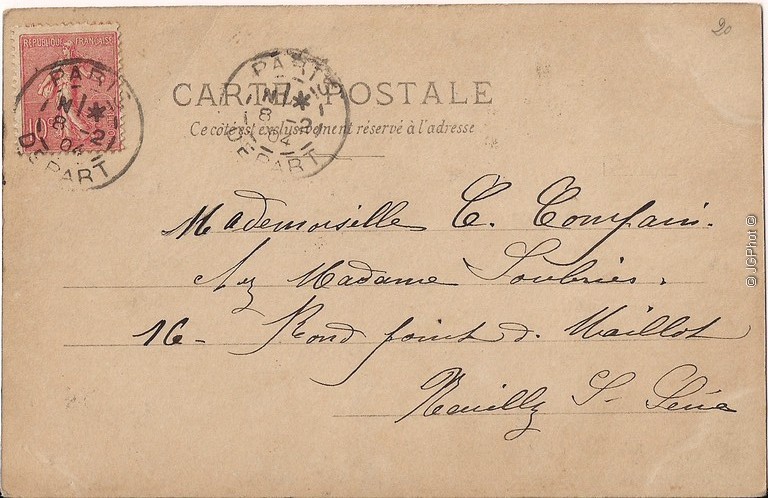 20
RÉPUBLIQUE FRANÇAISE
10 c
PARIS
DÉPART
PARIS
DÉPART
CARTE POSTALE
Ce côté est exclusivement réservé à l'adresse
Mademoiselle C. Compain.
chez Madame Soubries.
16- Rond point d. Maillot
Neuilly S- Seine
© JGPhot ©